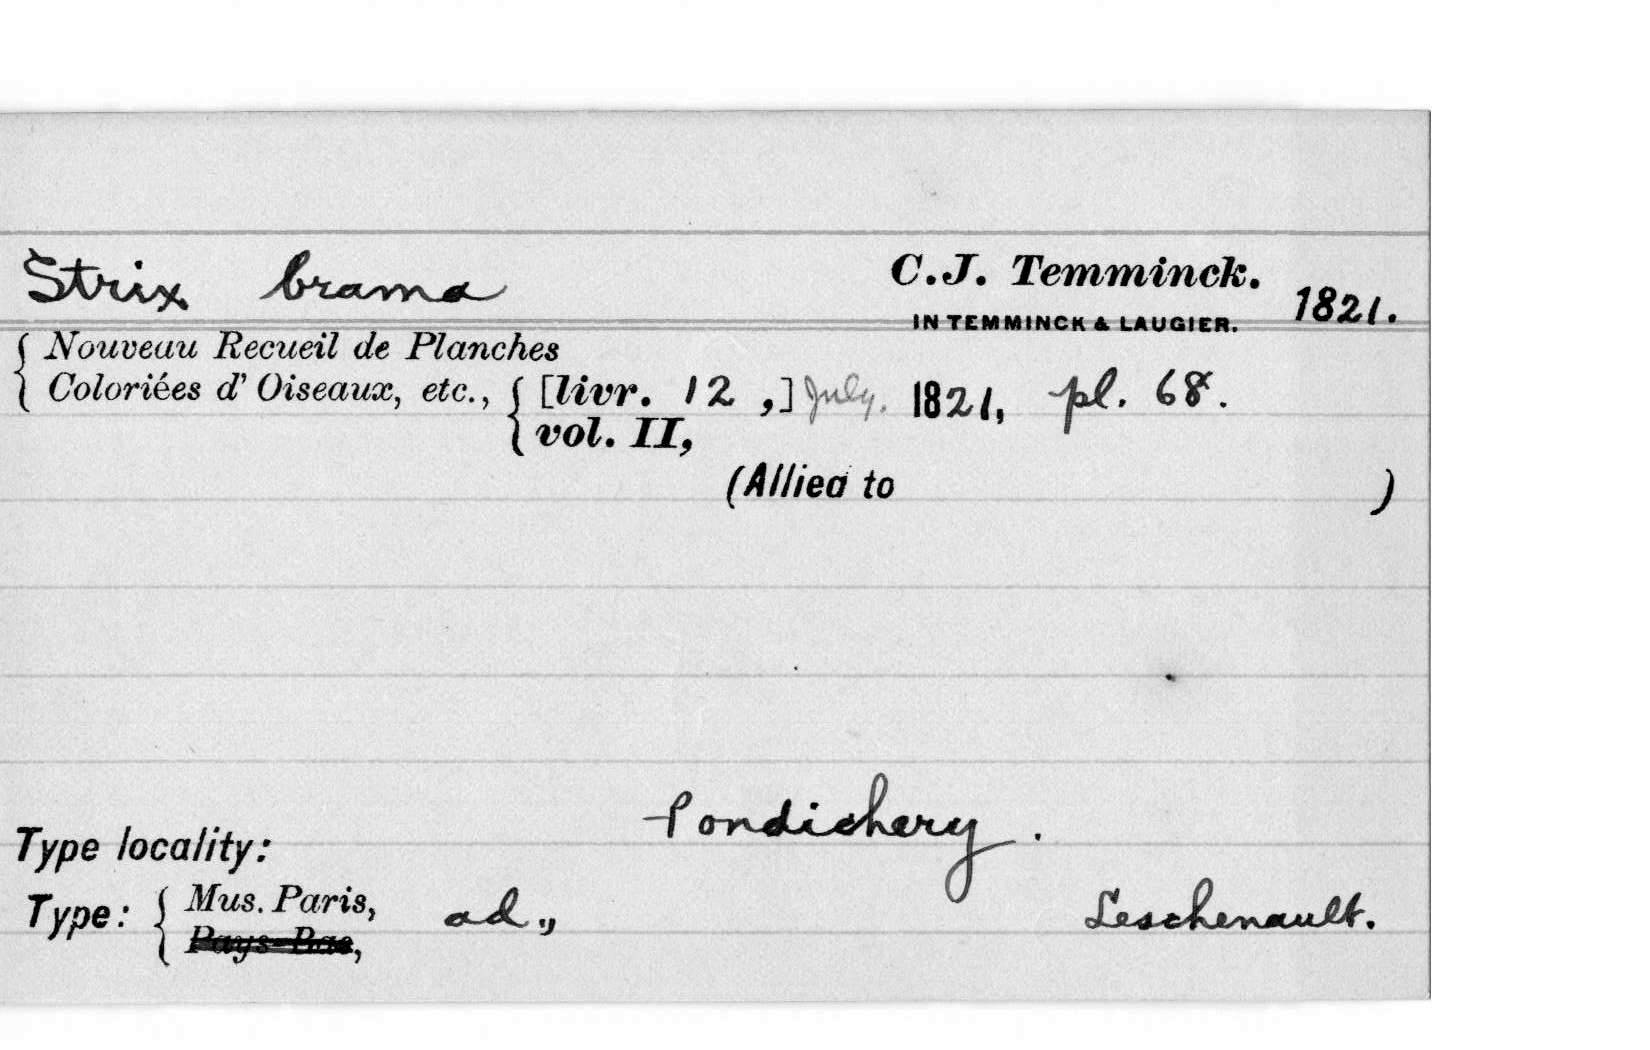 Strix brama C.J. Temminck. 1821.
IN TEMMINCK & LAUGIER.
{ Nouveau Recueil de Planches
Coloriées d' Oiseaux, etc., { [livr. 12 ,] July. 1821, pl. 68.
vol. II,
(Allied to )
Type locality: Pondichery.
Type: { Mus. Paris, ad., Leschenault.
Pays-Bas,